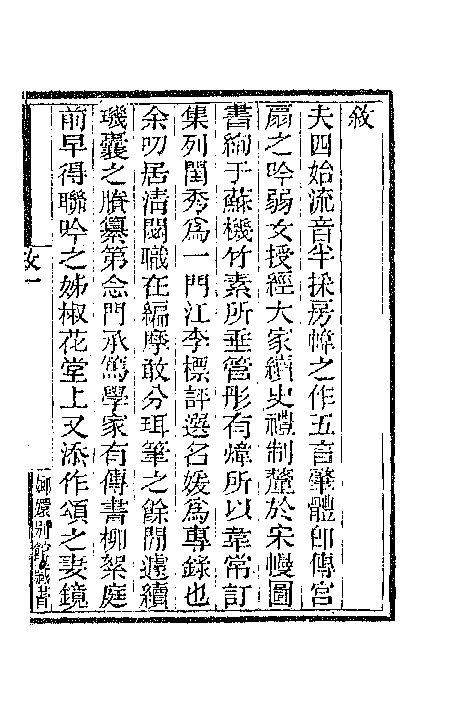 敘
夫四始流音半採房幃之作五言肇體即傳宮
扇之吟弱女授經大家續史禮制釐於宋幔圖
書絢于蘇機竹素所垂管彤有煒所以韋常訂
集列閨秀爲一門江李標評選名媛爲專錄也
余叨居清閟職在編摩敢分珥筆之餘閒遽續
璣囊之賸纂第念門承篤學家有傳書柳絮庭
前早得聯吟之姊椒花堂上又添作頌之妻鏡
敘一
嫏嬛別館藏書